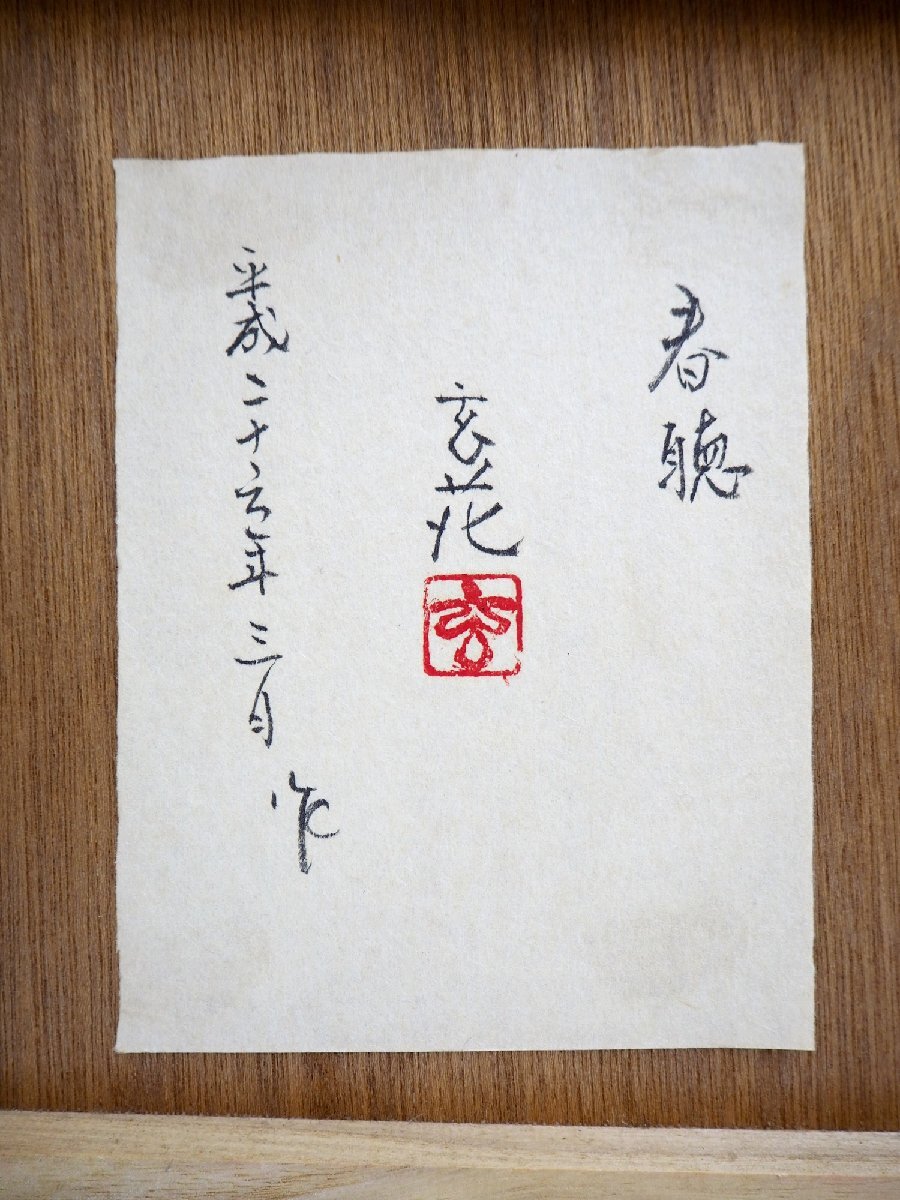 春聴
玄花
玄
平成二十六年三月
作